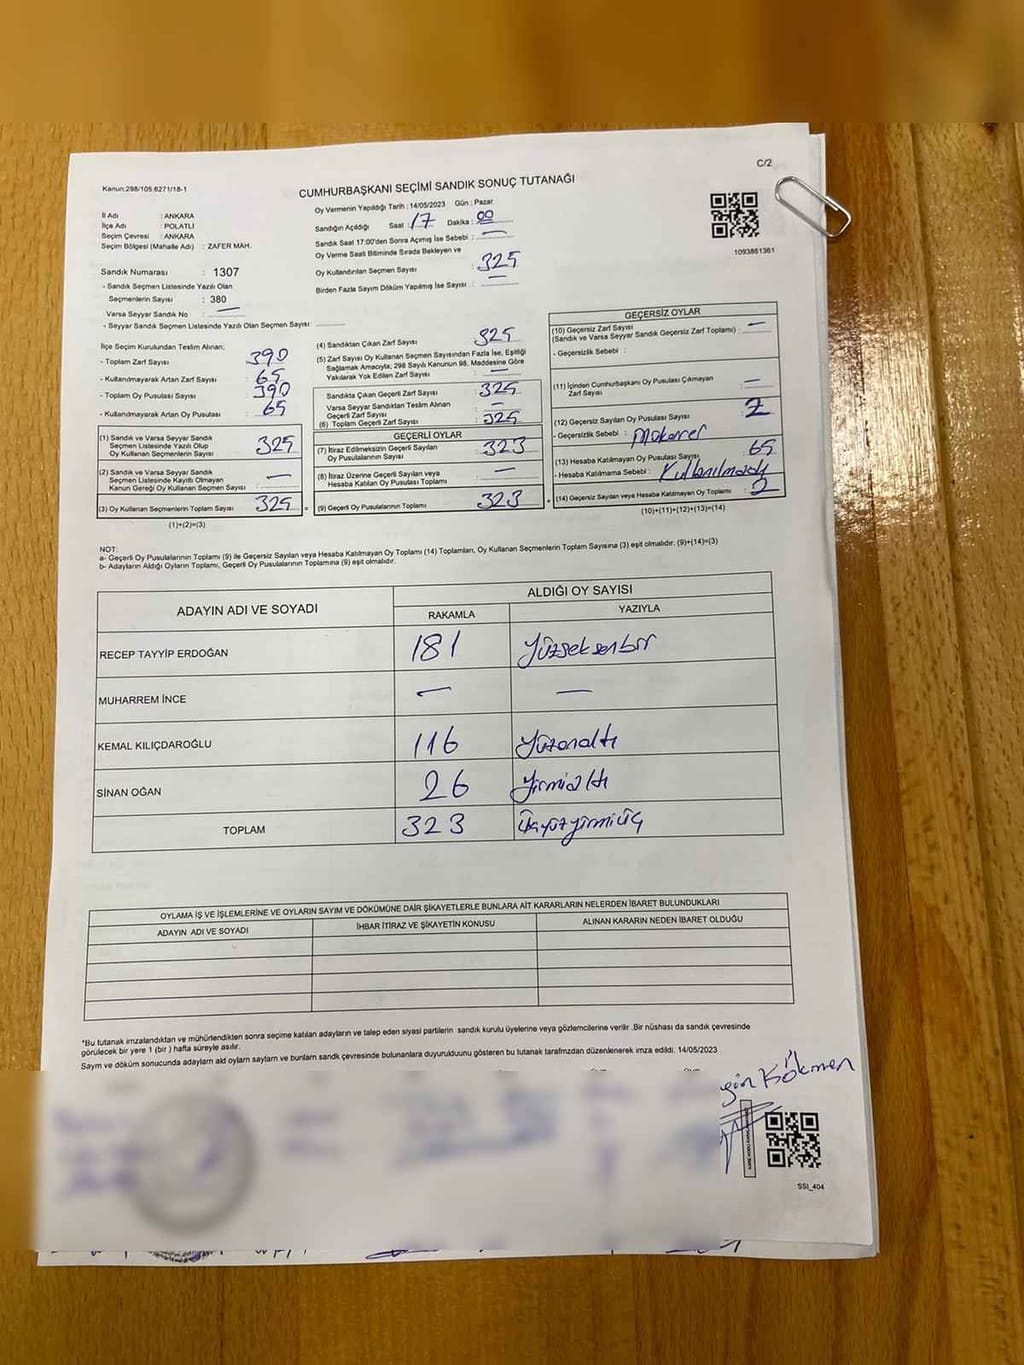 C/2
Kanun:298/105 6271/18-1
CUMHURBAŞKANI SEÇİMİ SANDIK SONUÇ TUTANAĞI
İl Adı : ANKARA
İlçe Adı : POLATLI
Seçim Çevresi : ANKARA
Seçim Bölgesi (Mahalle Adı) : ZAFER MAH.
Oy Vermenin Yapıldığı Tarih : 14/05/2023 Gün : Pazar
Sandığın Açıldığı Saat : 17 Dakika : 00
Sandık Saat 17:00'den Sonra Açımış İse Sebebi : —
Oy Verme Saati Bitiminde Sırada Bekleyen ve
Oy Kullandırılan Seçmen Sayısı : 325
Birden Fazla Sayım Döküm Yapılmış İse Sayısı : —
1093861361
Sandık Numarası : 1307
- Sandık Seçmen Listesinde Yazılı Olan
Seçmenlerin Sayısı : 380
Varsa Seyyar Sandık No : —
- Seyyar Sandık Seçmen Listesinde Yazılı Olan Seçmen Sayısı:
İlçe Seçim Kurulundan Teslim Alınan:
- Toplam Zarf Sayısı : 390
- Kullanılmayarak Artan Zarf Sayısı : 65
- Toplam Oy Pusulası Sayısı : 390
- Kullanılmayarak Artan Oy Pusulası : 65
(1) Sandık ve Varsa Seyyar Sandık
Seçmen Listesinde Yazılı Olup
Oy Kullanan Seçmenlerin Sayısı : 325
(2) Sandık ve Varsa Seyyar Sandık
Seçmen Listesinde Kayıtlı Olmayan
Kanun Gereği Oy Kullanan Seçmen Sayısı : —
(3) Oy Kullanan Seçmenlerin Toplam Sayısı : 325
(1)+(2)=(3)
(4) Sandıktan Çıkan Zarf Sayısı : 325
(5) Zarf Sayısı Oy Kullanan Seçmen Sayısından Fazla İse, Eşitliği
Sağlamak Amacıyla; 298 Sayılı Kanunun 98. Maddesine Göre
Yakılarak Yok Edilen Zarf Sayısı : —
Sandıkta Çıkan Geçerli Zarf Sayısı : 325
Varsa Seyyar Sandıktan Teslim Alınan
Geçerli Zarf Sayısı : —
(6) Toplam Geçerli Zarf Sayısı : 325
GEÇERLİ OYLAR
(7) İtiraz Edilmeksizin Geçerli Sayılan
Oy Pusulalarının Sayısı : 323
(8) İtiraz Üzerine Geçerli Sayılan veya
Hesaba Katılan Oy Pusulası Toplamı : —
(9) Geçerli Oy Pusulalarının Toplamı : 323
GEÇERSİZ OYLAR
(10) Geçersiz Zarf Sayısı
(Sandık ve Varsa Seyyar Sandık Geçersiz Zarf Toplamı) : —
- Geçersizlik Sebebi :
(11) İçinden Cumhurbaşkanı Oy Pusulası Çıkmayan
Zarf Sayısı : —
(12) Geçersiz Sayılan Oy Pusulası Sayısı : 2
- Geçersizlik Sebebi :
(13) Hesaba Katılmayan Oy Pusulası Sayısı : 65
- Hesaba Katılmama Sebebi : Kullanılmadı
(14) Geçersiz Sayılan veya Hesaba Katılmayan Oy Toplamı : 2
(10)+(11)+(12)+(13)=(14)
NOT:
a- Geçerli Oy Pusulalarının Toplamı (9) ile Geçersiz Sayılan veya Hesaba Katılmayan Oy Toplamı (14) Toplamları, Oy Kullanan Seçmenlerin Toplam Sayısına (3) eşit olmalıdır. (9)+(14)=(3)
b- Adayların Aldığı Oyların Toplamı, Geçerli Oy Pusulalarının Toplamına (9) eşit olmalıdır.
ADAYIN ADI VE SOYADI ALDIĞI OY SAYISI
RAKAMLA YAZIYLA
RECEP TAYYİP ERDOĞAN 181 Yüzseksenbir
MUHARREM İNCE — —
KEMAL KILIÇDAROĞLU 116 Yüzonaltı
SİNAN OĞAN 26 Yirmialtı
TOPLAM 323 Üçyüzyirmiüç
OYLAMA İŞ VE İŞLEMLERİNE VE OYLARIN SAYIM VE DÖKÜMÜNE DAİR ŞİKAYETLERLE BUNLARA AİT KARARLARIN NELERDEN İBARET BULUNDUKLARI
ADAYIN ADI VE SOYADI İHBAR İTİRAZ VE ŞİKAYETİN KONUSU ALINAN KARARIN NEDEN İBARET OLDUĞU
*Bu tutanak imzalandıktan ve mühürlendikten sonra seçime katılan adayların ve talep eden siyasi partilerin sandık kurulu üyelerine veya gözlemcilerine verilir .Bir nüshası da sandık çevresinde
görülecek bir yere 1 (bir ) hafta süreyle asılır.
Sayım ve döküm sonucunda adayların ald oyların sayıların ve bunların sandık çevresinde bulunanlara duyurulduunu gösteren bu tutanak tarafmzdan düzenlenerek imza edildi. 14/05/2023
Kökmen
SSI_404